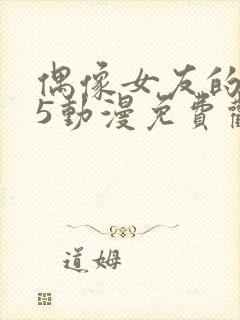 偶像女友的
5動漫免費
道姆